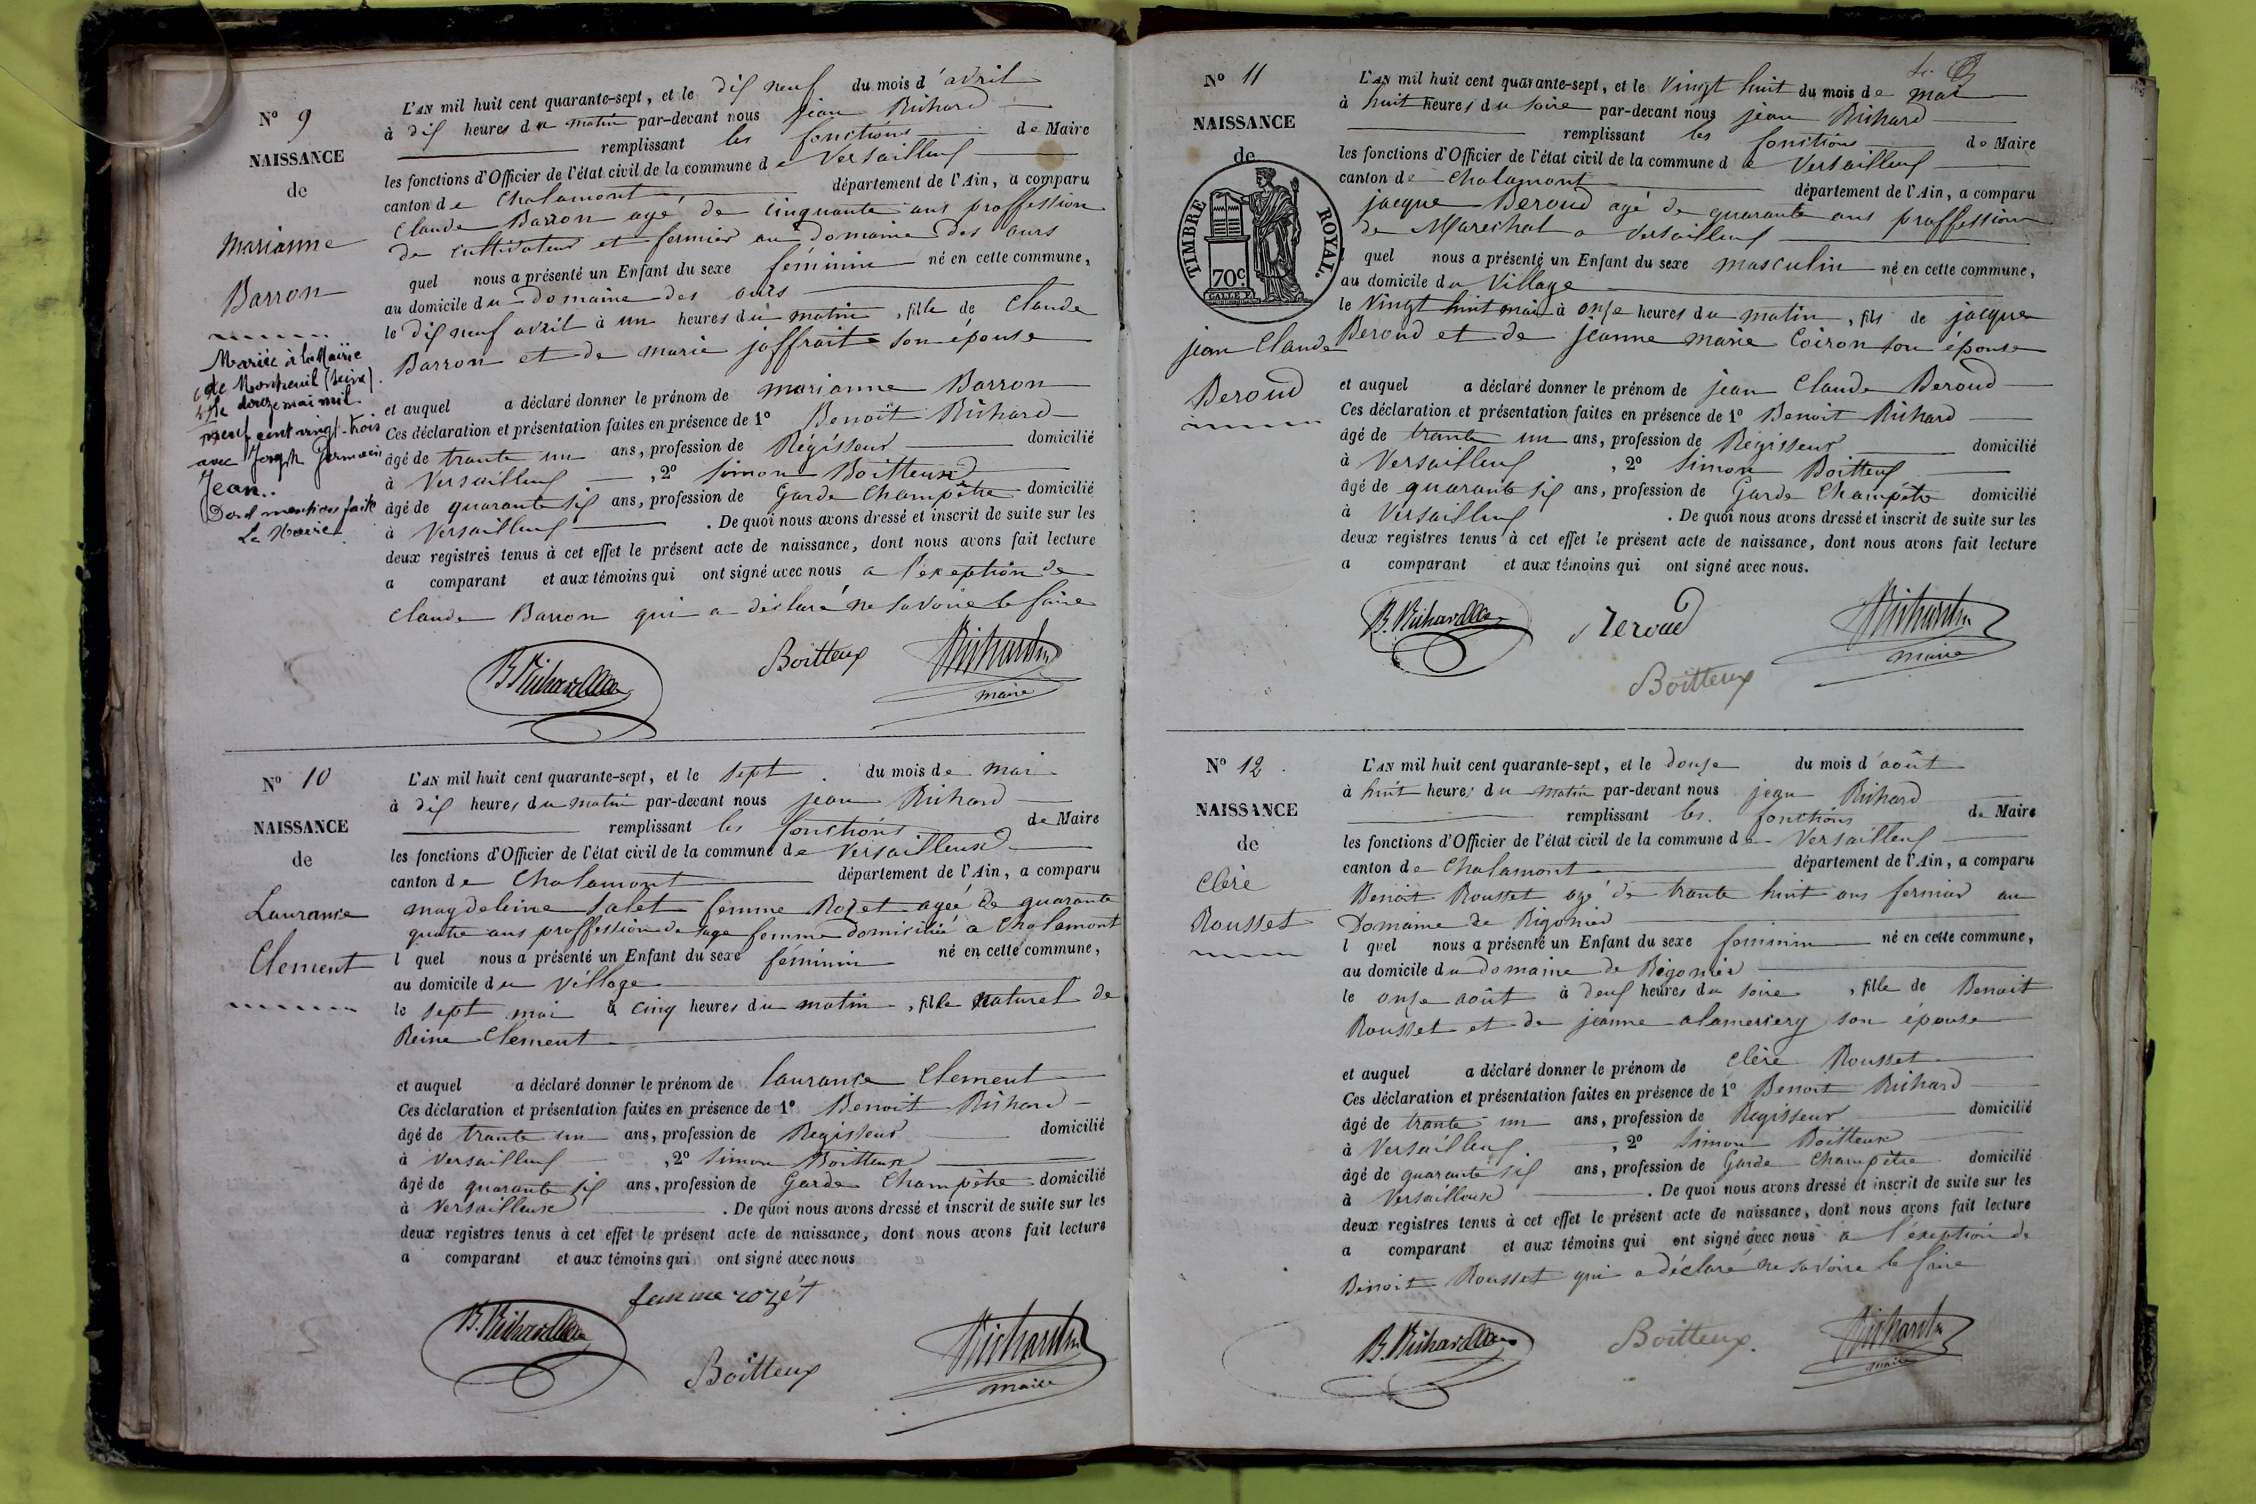 N° 9
NAISSANCE
de
Marianne
Barron
Mariée à la Mairie
de Montreuil (Seine)
le douze mai mil
neuf cent vingt-trois
avec Joseph Germain
Jean.
Dont mention faite
Le Maire
L'AN mil huit cent quarante-sept, et le dix neuf du mois d'avril
à dix heures du matin par-devant nous jean Richard
remplissant les fonctions de Maire
les fonctions d'Officier de l'état civil de la commune de Versailleux
canton de Chalamont département de l'Ain, a comparu
Claude Barron agé de cinquante ans proffession
de cultivateur et fermier au domaine des ours
quel nous a présenté un Enfant du sexe féminin né en cette commune,
au domicile du Domaine des ours
le dix neuf avril à un heures du matin, fille de Claude
Barron et de marie joffrait son épouse
et auquel a déclaré donner le prénom de marianne Barron
Ces déclaration et présentation faites en présence de 1° Benoît Richard
âgé de trante un ans, profession de Régisseur domicilié
à Versailleux , 2° Simon Boitteux
âgé de quarante six ans, profession de Garde Champêtre domicilié
à Versailleux . De quoi nous avons dressé et inscrit de suite sur les
deux registres tenus à cet effet le présent acte de naissance, dont nous avons fait lecture
a comparant et aux témoins qui ont signé avec nous a l'exeption de
Claude Barron qui a déclaré ne savoire le faire
B. Richard
Boitteux
Richard
maire
N° 10
NAISSANCE
de
Laurance
Clement
L'AN mil huit cent quarante-sept, et le sept du mois de mai
à dix heures du matin par-devant nous jean Richard
remplissant les fonctions de Maire
les fonctions d'Officier de l'état civil de la commune de Versailleux
canton de Chalamont département de l'Ain, a comparu
magdeleine Salet femme Rozet agée de quarante
quatre ans proffession de sage femme domiciliée a Chalamont
l quel nous a présenté un Enfant du sexe féminin né en cette commune,
au domicile du village
le sept mai à cinq heures du matin, fille naturel de
Reine Clement
et auquel a déclaré donner le prénom de laurance Clement
Ces déclaration et présentation faites en présence de 1° Benoit Richard
âgé de trante un ans, profession de Regisseur domicilié
à Versailleux , 2° Simon Boitteux
âgé de quarante six ans, profession de Garde Champêtre domicilié
à Versailleux . De quoi nous avons dressé et inscrit de suite sur les
deux registres tenus à cet effet le présent acte de naissance, dont nous avons fait lecture
a comparant et aux témoins qui ont signé avec nous
femme rozét
B. Richard
Boitteux
Richard
maire
N° 11
NAISSANCE
de
TIMBRE ROYAL.
70c.
jean Claude
Beroud
L'AN mil huit cent quarante-sept, et le vingt huit du mois de mai
à huit heures du soire par-devant nous jean Richard
remplissant les fonctions de Maire
les fonctions d'Officier de l'état civil de la commune de Versailleux
canton de Chalamont département de l'Ain, a comparu
jacque Beroud agé de quarante ans proffession
de Marechal a Versailleux
quel nous a présenté un Enfant du sexe masculin né en cette commune,
au domicile du Village
le Vingt huit mai à onse heures du matin, fils de jacque
Beroud et de jeanne marie Coiron son épouse
et auquel a déclaré donner le prénom de jean Claude Beroud
Ces déclaration et présentation faites en présence de 1° Benoit Richard
âgé de trante un ans, profession de Regisseur domicilié
à Versailleux , 2° Simon Boitteux
âgé de quarante six ans, profession de Garde Champêtre domicilié
à Versailleux . De quoi nous avons dressé et inscrit de suite sur les
deux registres tenus à cet effet le présent acte de naissance, dont nous avons fait lecture
a comparant et aux témoins qui ont signé avec nous.
B. Richard
Beroud
Richard
maire
Boitteux
N° 12
NAISSANCE
de
Clère
Rousset
L'AN mil huit cent quarante-sept, et le douse du mois d'août
à huit heures du matin par-devant nous jean Richard
remplissant les fonctions de Maire
les fonctions d'Officier de l'état civil de la commune de Versailleux
canton de Chalamont département de l'Ain, a comparu
Benoit Rousset agé de trante huit ans fermier au
Domaine de Rigonier
l quel nous a présenté un Enfant du sexe feminin né en cette commune,
au domicile du domaine de Rigonier
le onse août à deux heures du soire, fille de Benoit
Rousset et de jeanne alameriery son épouse
et auquel a déclaré donner le prénom de Clère Rousset
Ces déclaration et présentation faites en présence de 1° Benoit Richard
âgé de trante un ans, profession de Regisseur domicilié
à Versailleux. , 2° Simon Boitteux
âgé de quarante six ans, profession de Garde Champêtre domicilié
à Versailleux . De quoi nous avons dressé et inscrit de suite sur les
deux registres tenus à cet effet le présent acte de naissance, dont nous avons fait lecture
a comparant et aux témoins qui ont signé avec nous a l'exeption de
Benoit Rousset qui a déclaré ne savoire le faire
B. Richard
Boitteux.
Richard
maire